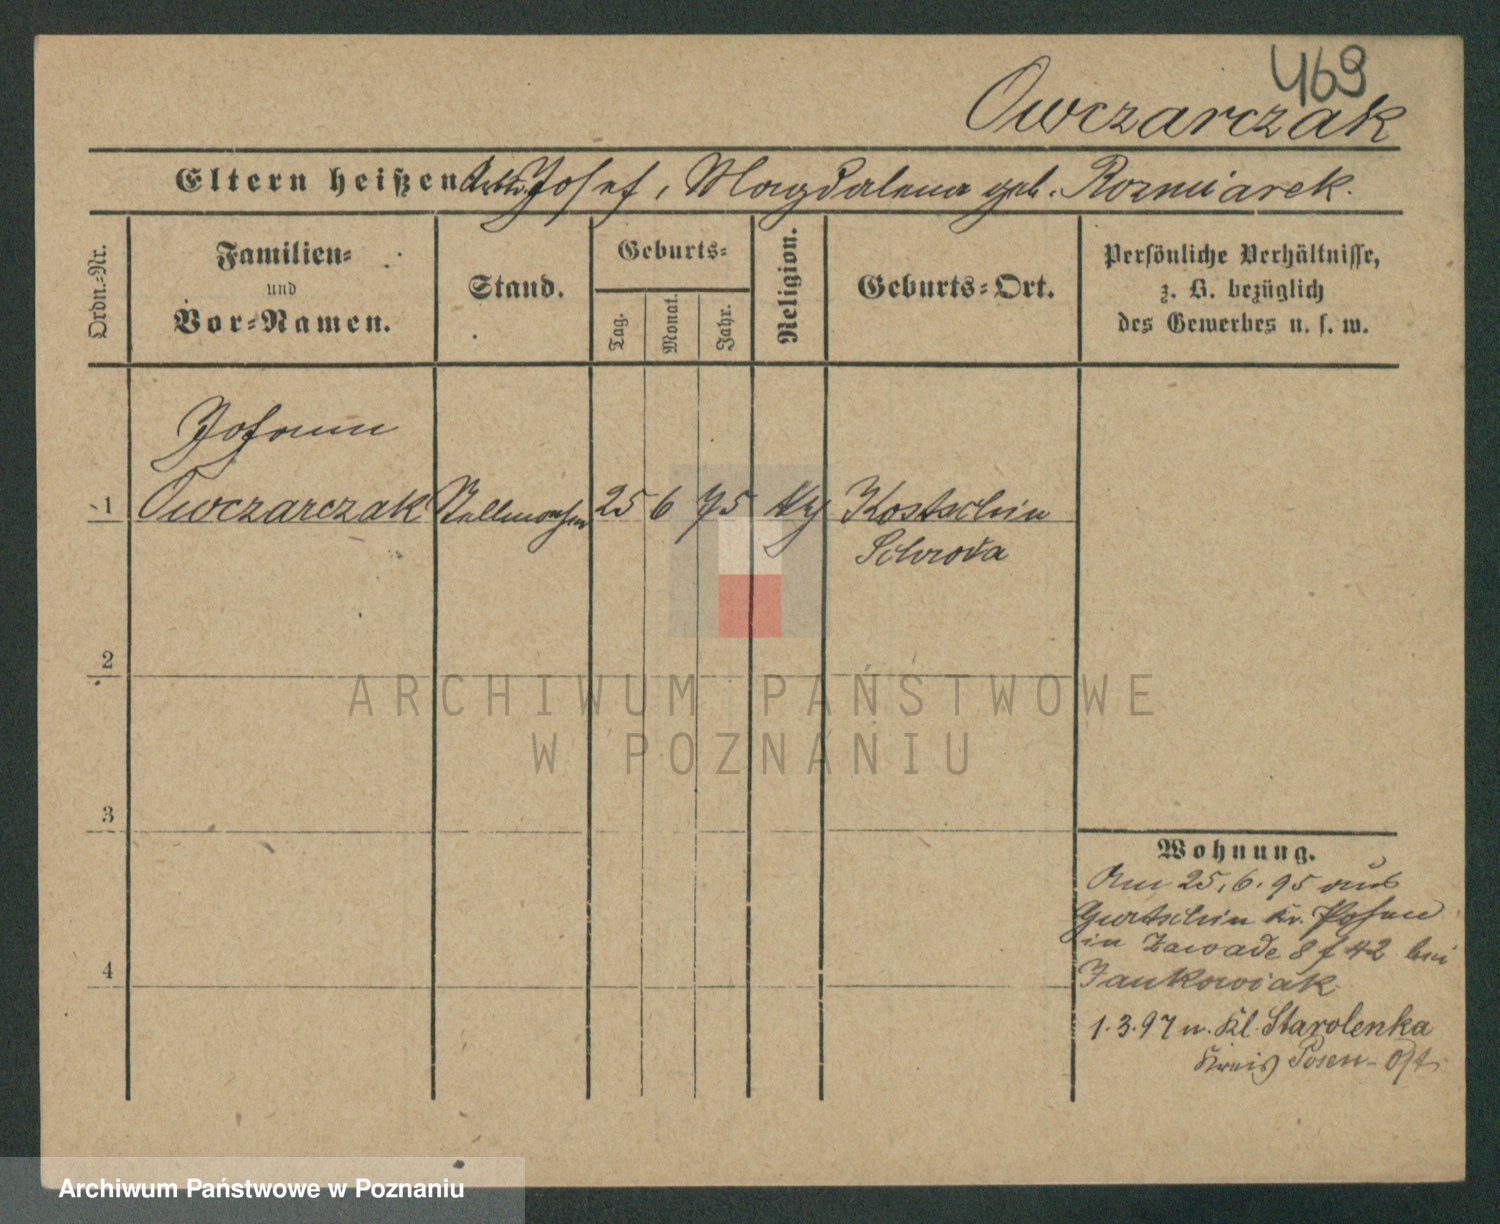 469
Owczarczak
Eltern heißen Josef, Magdalena geb. Rozmiarek.
Ordn.-Nr.
Familien-
und
Vor-Namen.
Stand.
Geburts-
Tag.
Monat.
Jahr.
Religion.
Geburts-Ort.
Persönliche Verhältnisse,
z. B. bezüglich
des Gewerbes u. s. w.
Johann
1 Owczarczak Stellmacher 25 6 75 Kostschin
Schroda
2
ARCHIWUM PAŃSTWOWE
W POZNANIU
3
4
Wohnung.
Am 25.6.95 aus
Gurtschin Kr. Posen
in Zawade 8 f 42 bei
Jankowiak
1.3.97 n. Kl. Starolenka
Kreis Posen-Ost.
Archiwum Państwowe w Poznaniu